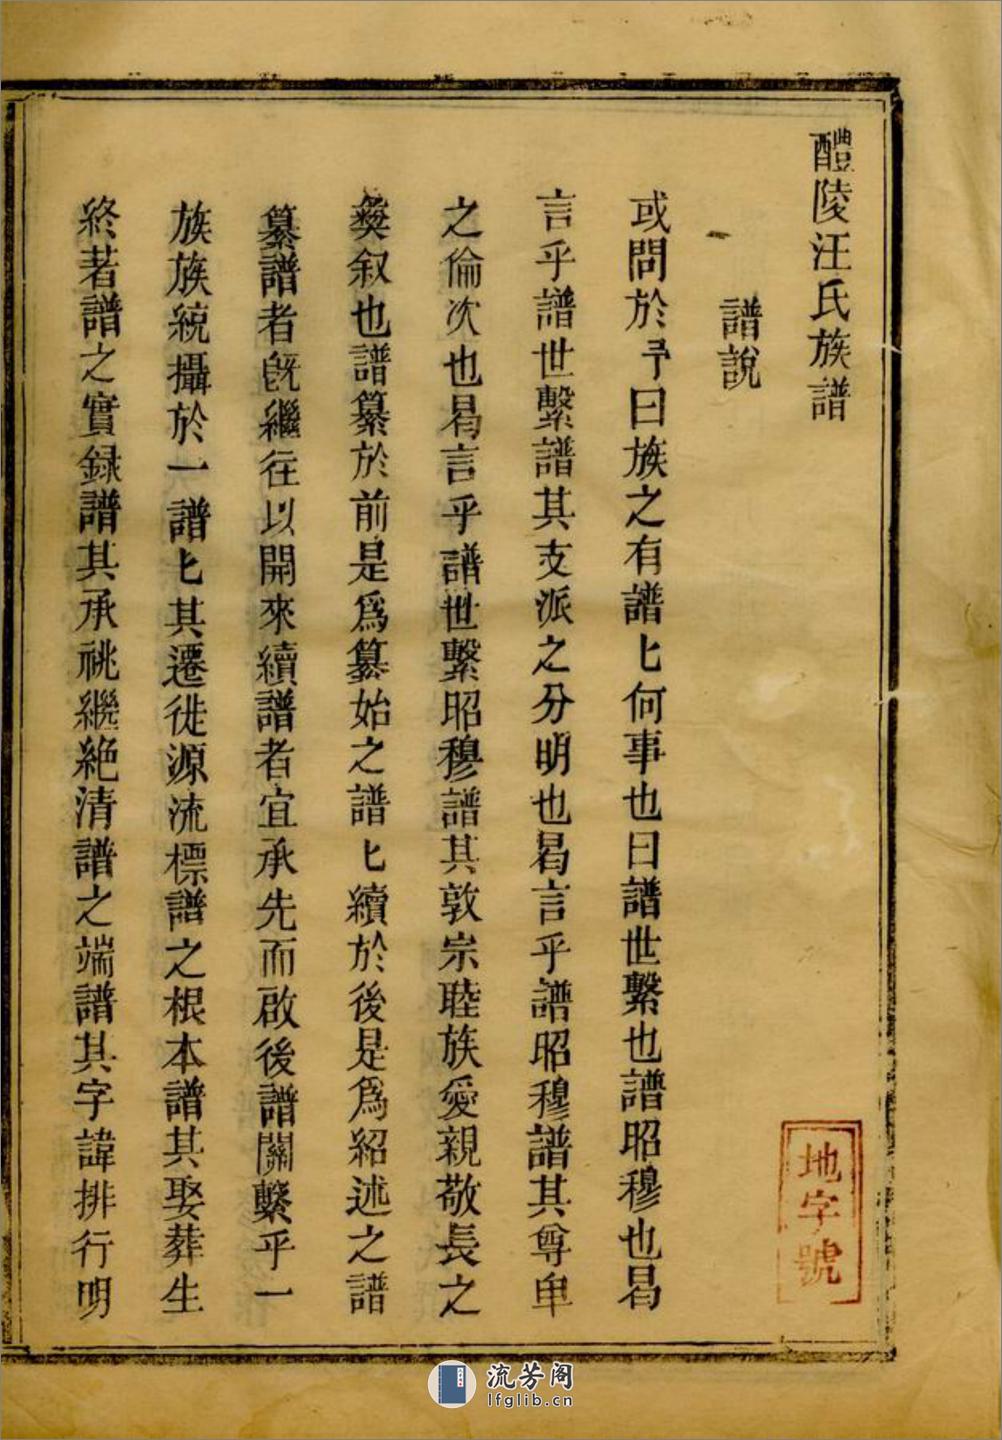 醴陵汪氏族譜
譜說
或問於予曰族之有譜匕何事也曰譜世繫也譜昭穆也曷
言乎譜世繫譜其支派之分明也曷言乎譜昭穆譜其尊卑
之倫次也曷言乎譜世繫昭穆譜其敦宗睦族愛親敬長之
彝叙也譜纂於前是爲纂始之譜匕續於後是爲紹述之譜
纂譜者旣繼往以開來續譜者宜承先而啟後譜關繫乎一
族族統攝於一譜匕其遷徙源流標譜之根本譜其娶葬生
終著譜之實録譜其承祧繼絶清譜之端譜其字諱排行明
地字號
流芳阁
lfglib.cn